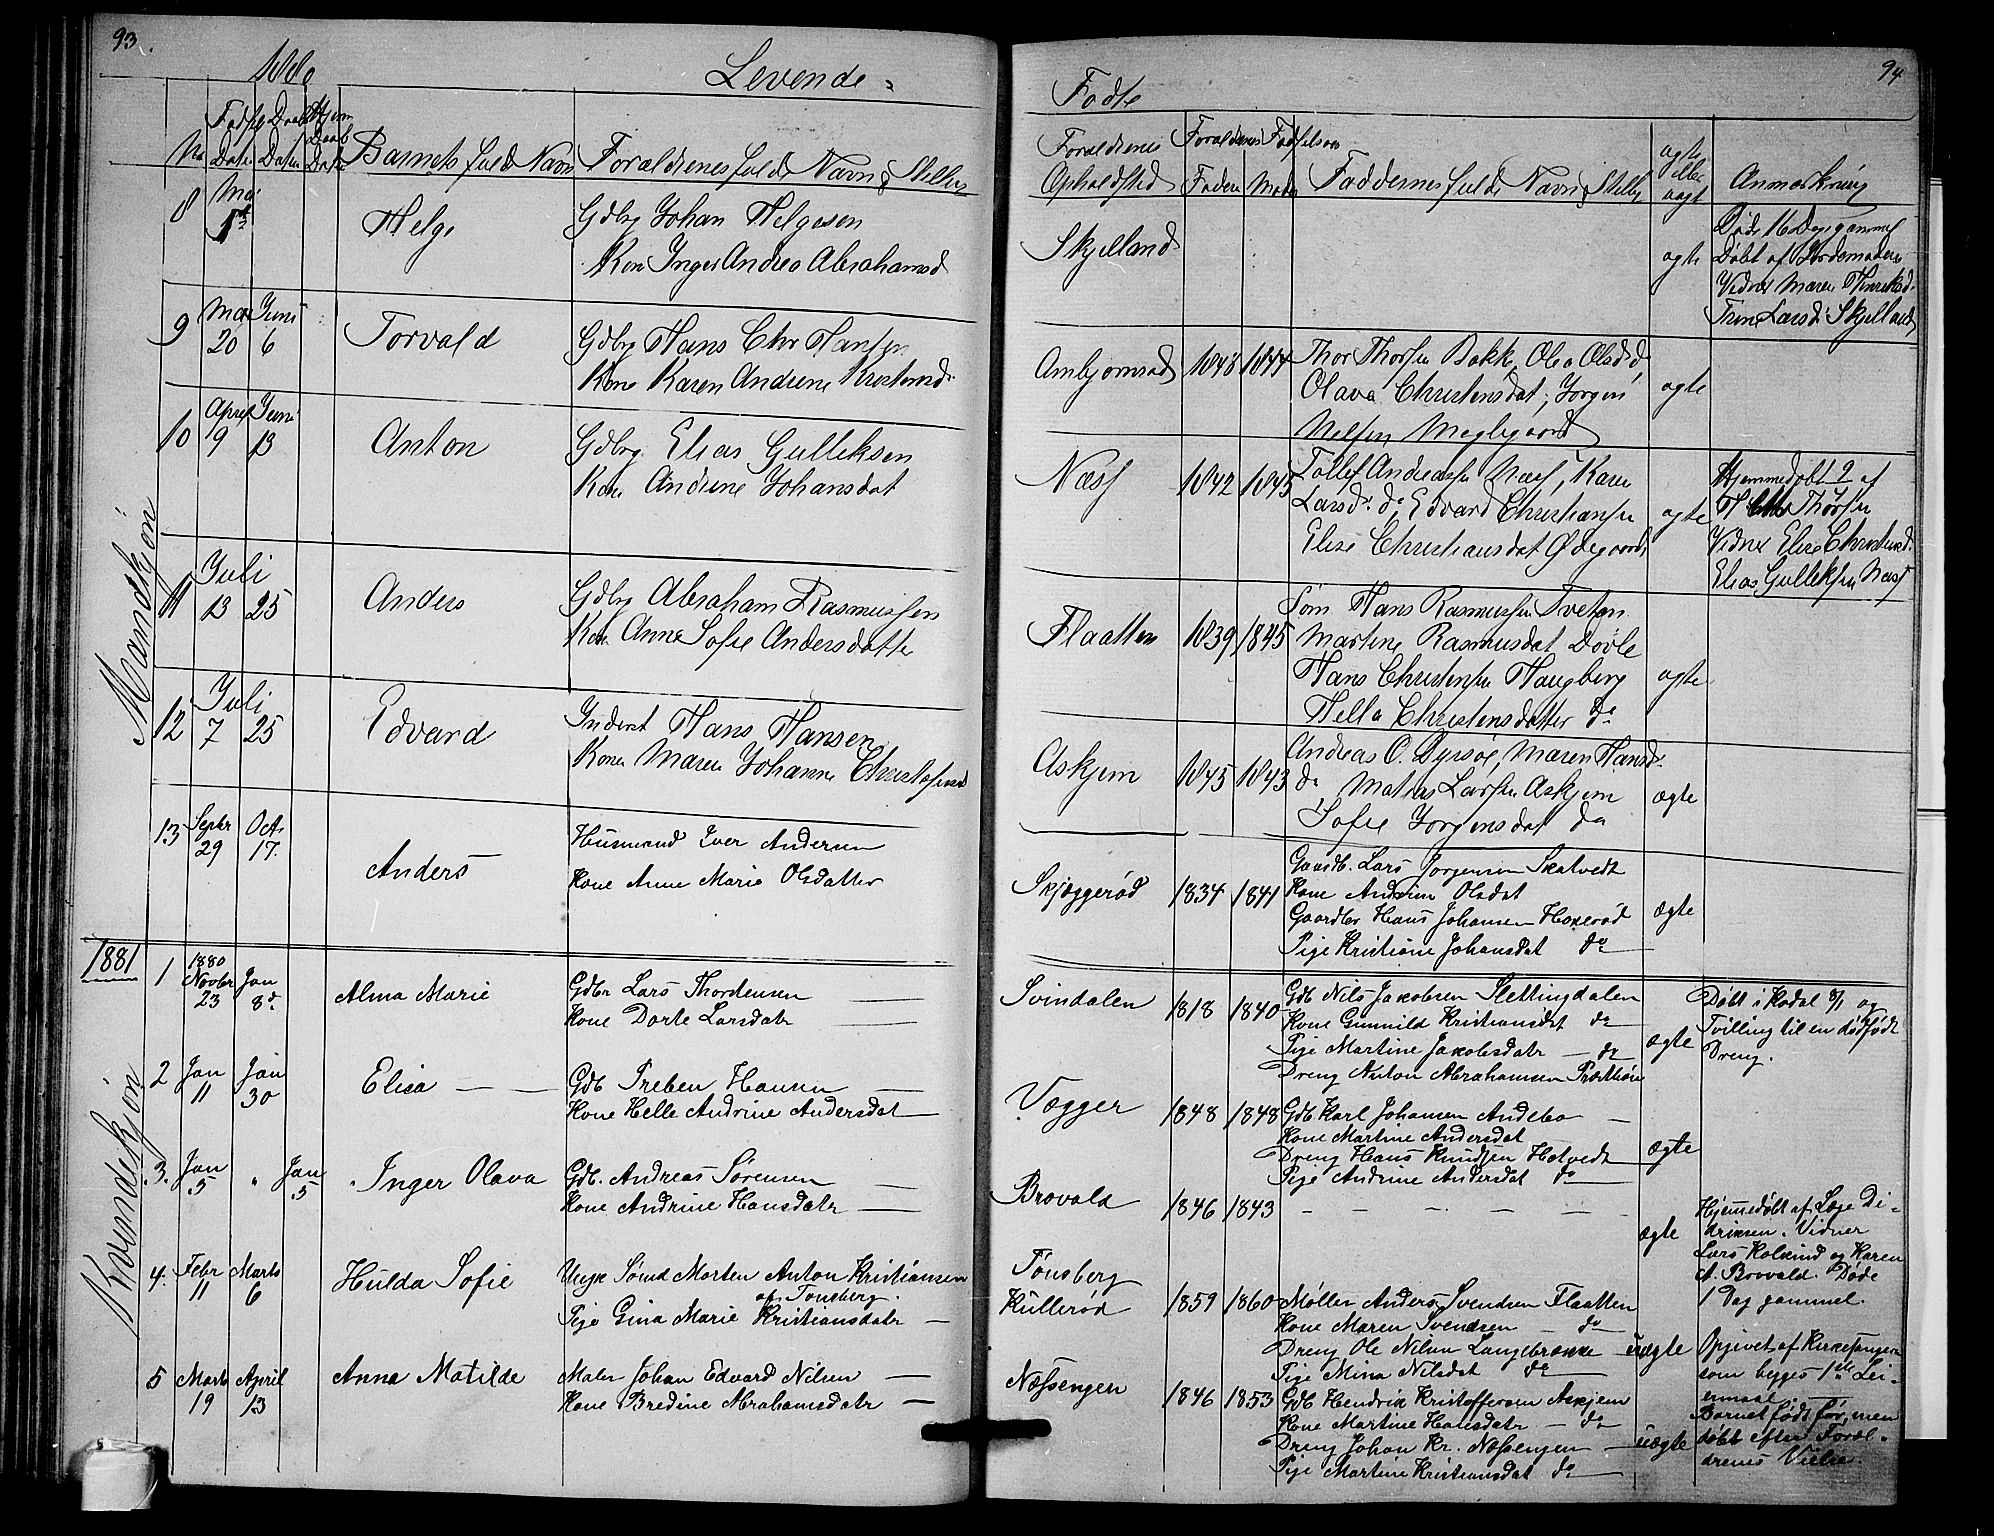 93.
1880
Levende
No
Fødsels Dato
Daab Dato
Hjem Daab Dato
Barnets fulde Navn
Foraldrenes fulde Navn & Stilling
Mandkjøn
8
Mai
1ste
Helge
Gdbr Johan Helgesen
Kon Inger Andrea Abrahamsd
9
Mai
20
Juni
6
Torvald
Gdbr Hans Chr Hansen
Kone Karen Andrine Kristensd.
10
April
9
Juni
13
Anton
Gdbr Elias Gulleksen
Kone Andrine Johansdat
11
Juli
13
25
Anders
Gdbr Abraham Rasmussen
Kon Anne Sofie Andersdatte
12
Juli
7
25
Edvard
Inderst Hans Hansen
Kone Maren Johanne Christofersd
13
Septbr
29
Oct.
17.
Anders
Husmand Iver Andersen
Kone Anne Marie Olsdatter
1881
Kvindekjøn
1
1880
Novbr
23
Jan
8de
Alma Marie
Gdbr Lars Thordensen
Kone Dorte Larsdatr
2
Jan
11
Jan
30
Elisa
Gdb Preben Hansen
Kone Helle Andrine Andersdat
3.
Jan
5
"
Jan
5
Inger Olava
Gdb. Andreas Sørensen
Kone Andrine Hansdatr
4.
Febr
11
Marts
6
Hulda Sofie
Ungk Sømd Morten Anton Kristiansen
af Tønsberg.
Pige Gina Marie Kristiansdatr
5
Marts
19
April
13
Anna Matilde
Maler Johan Edvard Nilsen
Kone Bredine Abrahamsdatr
94
Fødte
Foraldrenes Opholdsted
Foraldrenes Fødselsaar
Fadere
Moder
Faddernes fulde Navn & Stilling
agte eller uagt
Anmerkning
Skjelland
agte
Døde 16 Dage gammel
Døbt af Jordemoderen
Vidner Maren Henriksd.
Trine Larsd. Skjelland
Ambjørnrød
1848
1844
Thor Thorsen Bakke, Olea Olsd do
Olava Christensdat, Jørgen
Nelsen Møglegaard
agte
Næss
1842
1845
Tollef Andreassen Næss, Karen
Larsd. do, Edvard Christiansen
Elise Christiansdat Ødegaard
agte
Hjemmedøbt af
H Chr Thorsen
Vidner Elise Christiansd.
Elias Gulleksen Næss
Flaatten
1839
1845
Søm Hans Rasmussen Tveten
Martine Rasmusdat Døvle
Hans Christensen Haugberg
Helle Christensdatter do
agte
Askjem
1845
1843
Andreas O. Dyrsøe, Maren Hansd.
do Matias Larsen Askjem
Sofie Jorgensdat do
ægte
Skjæggerød
1834
1841
Gaardb. Lars Jørgensen Skatvedt
Kone Andrine Olsdat
Gaardbr Hans Johansen Hoxerød
Pige Kristiane Johansdat do
ægte
Svindalen
1818
1840
Gdb Nils Jakobsen Slettingdalen
Kone Gunnild Kristiansdat do
Pige Martine Jakobsdatr do
Dreng Anton Abrahamsen Prætkjøn
ægte
Døbt i Kodal 8/1 og
Tvilling til en dødfødt
Dreng.
Vegger
1848
1848
Gdb Karl Johansen Andebo
Kone Martine Andersdat
Dreng Hans Knudsen Hotvedt
Pige Andrine Andersdat do
ægte
Brovald
1846
1843
ægte
Hjemmedøbt af Læge Di-
driksen. Vidner
Lars Kolkind og Karen
A. Brovald. Døde
1 Dag gammel.
Tønsberg
Kullerød
1859
1860
Møller Anders Svendsen Flaatten
Kone Maren Svendsen do
Dreng Ole Nilsen Langebrække
Pige Mina Nilsdat do
uægte
Opgivet af Kirkesangeren
som begges 1ste Lei-
ermaal.
Næssengen
1846
1853
Gdb Hendrik Kristoffersen Askjem
Kone Martine Hansdatr do
Dreng Johan Kr. Næssengen
Pige Martine Kristiansdat do
uægte
Barnet født før, men
døbt efter Foræl-
drenes Vielse.